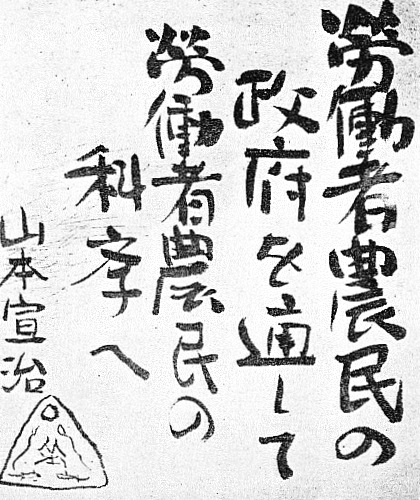 勞働者農民の
政府を通して
勞働者農民の
科学へ
山本宣治